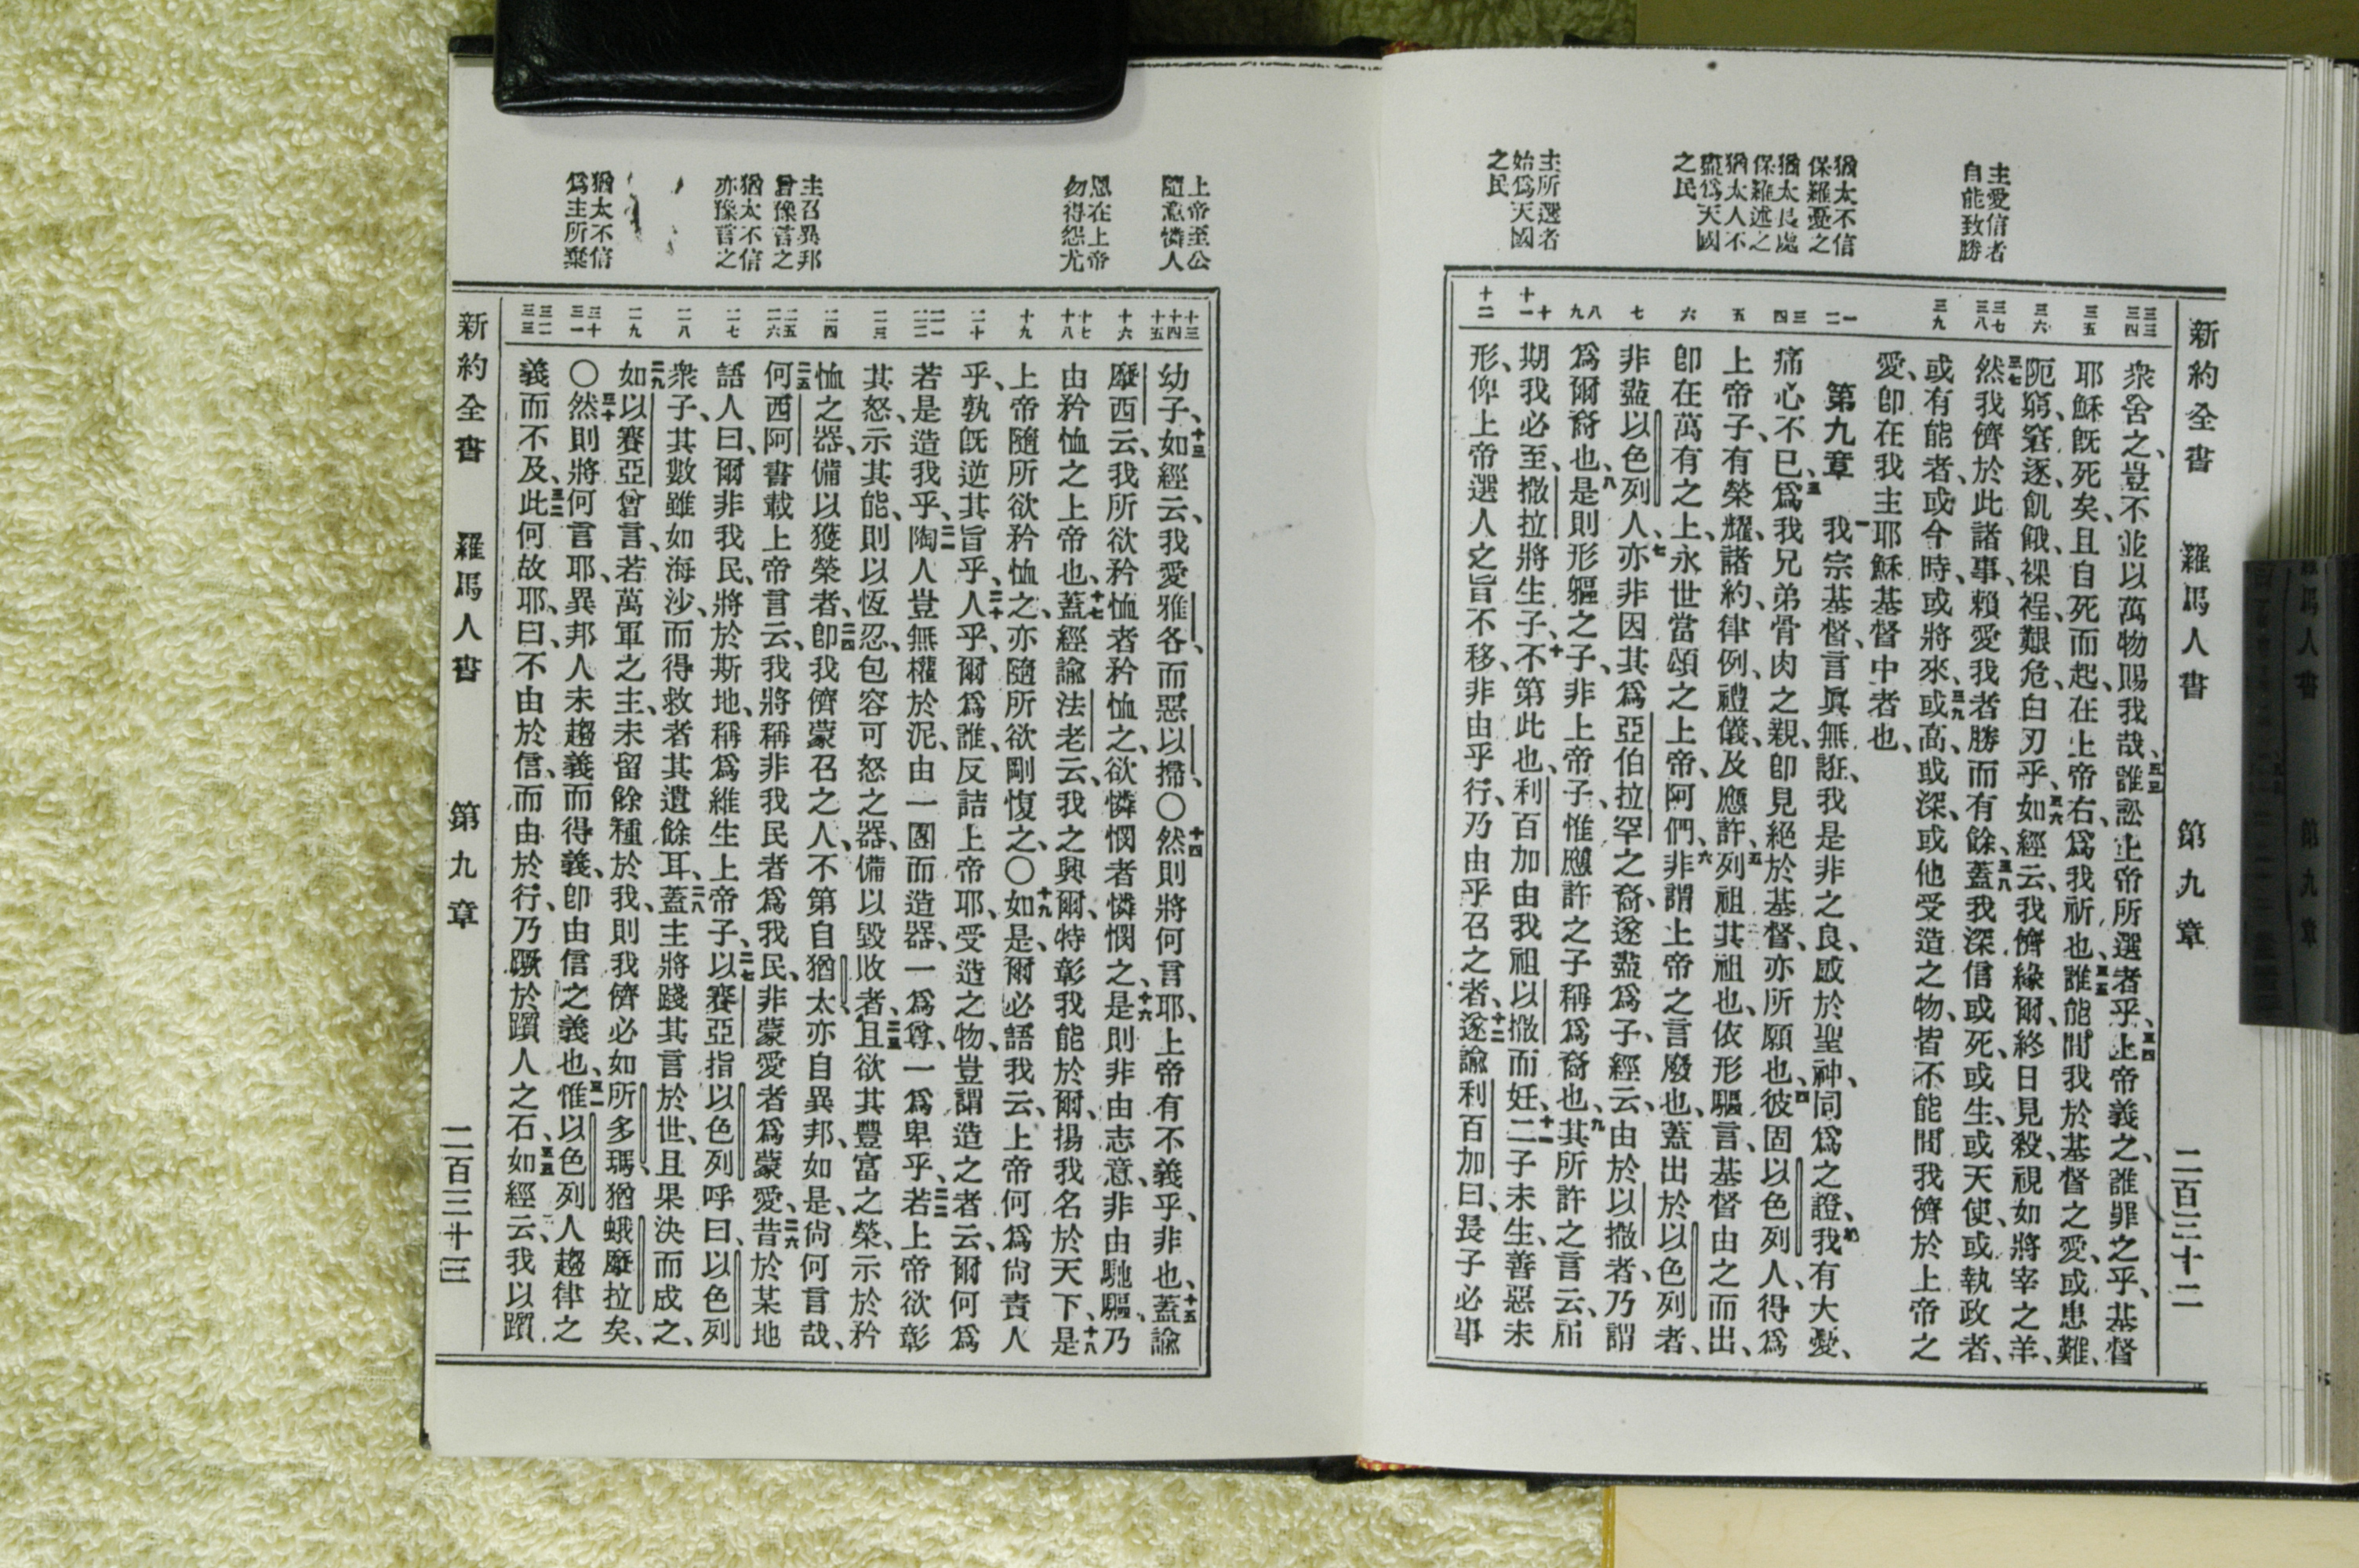 主愛信者
自能致勝
猶太不信
保羅憂之
猶太長處
保羅述之
猶太人不
盡爲天國
之民
主所選者
始爲天國
之民
新約全書 羅馬人書 第九章 二百三十二
三三 三四
三五
三六
三七 三八
三九
一 二
三 四
五
六
七
八 九
十 十一
十二
衆舍之、豈不並以萬物賜我哉、三三誰訟上帝所選者乎、三四上帝義之、誰罪之乎、基督
耶穌旣死矣、且自死而起、在上帝右、爲我祈也、三五誰能間我於基督之愛、或患難、
阨窮、窘逐、飢餓、裸裎、艱危、白刃乎、三六如經云、我儕緣爾、終日見殺、視如將宰之羊、
三七然我儕於此諸事、賴愛我者勝而有餘、三八蓋我深信或死、或生、或天使、或執政者、
或有能者、或今時、或將來、三九或高、或深、或他受造之物、皆不能間我儕於上帝之
愛、卽在我主耶穌基督中者也、
第九章 一我宗基督、言眞無誑、我是非之良、感於聖神、同爲之證、二我有大憂、
痛心不已、三爲我兄弟骨肉之親、卽見絕於基督、亦所願也、四彼固以色列人、得爲
上帝子、有榮耀、諸約、律例、禮儀、及應許、五列祖其祖也、依形軀言、基督由之而出、
卽在萬有之上、永世當頌之上帝、阿們、六非謂上帝之言廢也、蓋出於以色列者、
非盡以色列人、七亦非因其爲亞伯拉罕之裔、遂盡爲子、經云、由於以撒者、乃謂
爲爾裔也、八是則形軀之子、非上帝子、惟應許之子稱爲裔也、九其所許之言云、屆
期我必至、撒拉將生子、十不第此也、利百加由我祖以撒而妊、十一二子未生、善惡未
形、俾上帝選人之旨不移、非由乎行、乃由乎召之者、十二遂諭利百加曰、長子必事
上帝至公
隨意憐人
恩在上帝
勿得怨尤
主召異邦
曾豫言之
猶太不信
亦豫言之
猶太不信
爲主所棄
十三 十四 十五
十六
十七 十八
十九
二十
二一 二二
二三
二四
二五 二六
二七
二八
二九
三十 三一
三二 三三
幼子、十三如經云、我愛雅各、而惡以掃、〇十四然則將何言耶、上帝有不義乎、非也、十五蓋諭
摩西云、我所欲矜恤者矜恤之、欲憐憫者憐憫之、十六是則非由志意、非由馳驅、乃
由矜恤之上帝也、十七蓋經諭法老云、我之興爾、特彰我能於爾、揚我名於天下、十八是
上帝隨所欲矜恤之、亦隨所欲剛愎之、〇十九如是、爾必語我云、上帝何爲尚責人
乎、孰旣逆其旨乎、二十人乎、爾爲誰、反詰上帝耶、受造之物、豈謂造之者云、爾何爲
若是造我乎、二一陶人豈無權於泥、由一團而造器、一爲尊、一爲卑乎、二二若上帝欲彰
其怒、示其能、則以恆忍、包容可怒之器、備以毀敗者、二三且欲其豐富之榮、示於矜
恤之器、備以獲榮者、二四卽我儕蒙召之人、不第自猶太、亦自異邦、如是、尚何言哉、
二五何西阿書載上帝言云、我將稱非我民者爲我民、非蒙愛者爲蒙愛、二六昔於某地
語人曰、爾非我民、將於斯地、稱爲維生上帝子、二七以賽亞指以色列呼曰、以色列
衆子、其數雖如海沙、而得救者其遺餘耳、二八蓋主將踐其言於世、且果決而成之、
二九如以賽亞曾言、若萬軍之主、未留餘種於我、則我儕必如所多瑪、猶蛾摩拉矣、
〇三十然則將何言耶、異邦人未趨義而得義、卽由信之義也、三一惟以色列人趨律之
義而不及、三二此何故耶、曰、不由於信、而由於行、乃蹶於躓人之石、三三如經云、我以躓
新約全書 羅馬人書 第九章 二百三十三